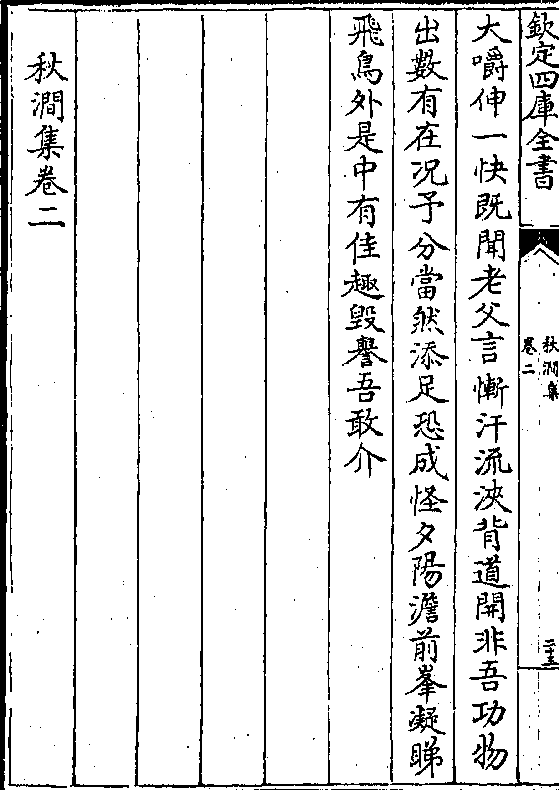 欽定四庫全書
秋澗集
卷二
二十五
大嚼伸一快既聞老父言慚汗流浹背道開非吾功物
出數有在况予分當然添足恐成怪夕陽澹前峯凝睇
飛鳥外是中有佳趣毀譽吾敢介
秋澗集卷二